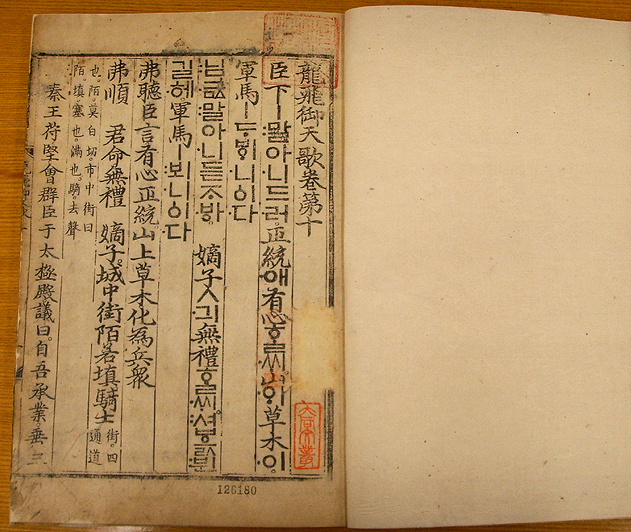 龍飛御天歌卷第十
臣下ㅣ말아니드러。正統애有心ᄒᆞᆯᄊᆡ。山이草木이。
軍馬ㅣᄃᆞᄫᆡ니ᅌᅵ다
님금말아니듣ᄌᆞᄫᅡ。嫡子ㅅ긔無禮ᄒᆞᆯᄊᆡ。셔ᇰ뷘
길헤軍馬ㅣ뵈니ᅌᅵ다
弗聽臣言有心正統山上草木化為兵衆
弗順 君命無禮 嫡子。城中街陌若填騎士 街。四通道
也。陌。莫白切。市中街曰
陌。填。塞也。滿也。騎。去聲
秦王苻堅會群臣于太極殿議曰。自吾承業垂三
126180